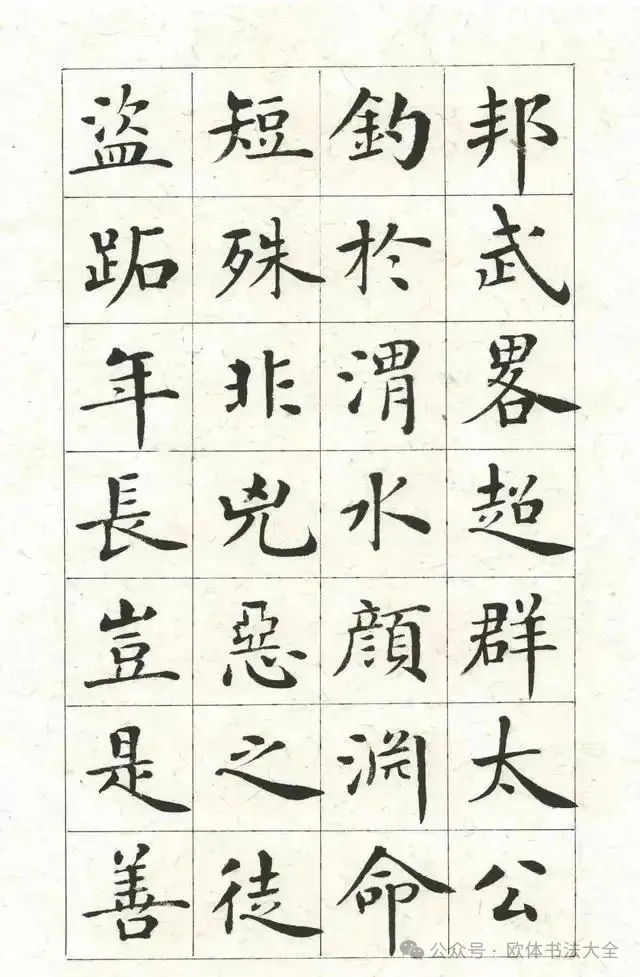 邦武畧超群太公
釣於渭水顏渊命
短殊非兇惡之徒
盜跖年長豈是善
公众号·欧体书法大全